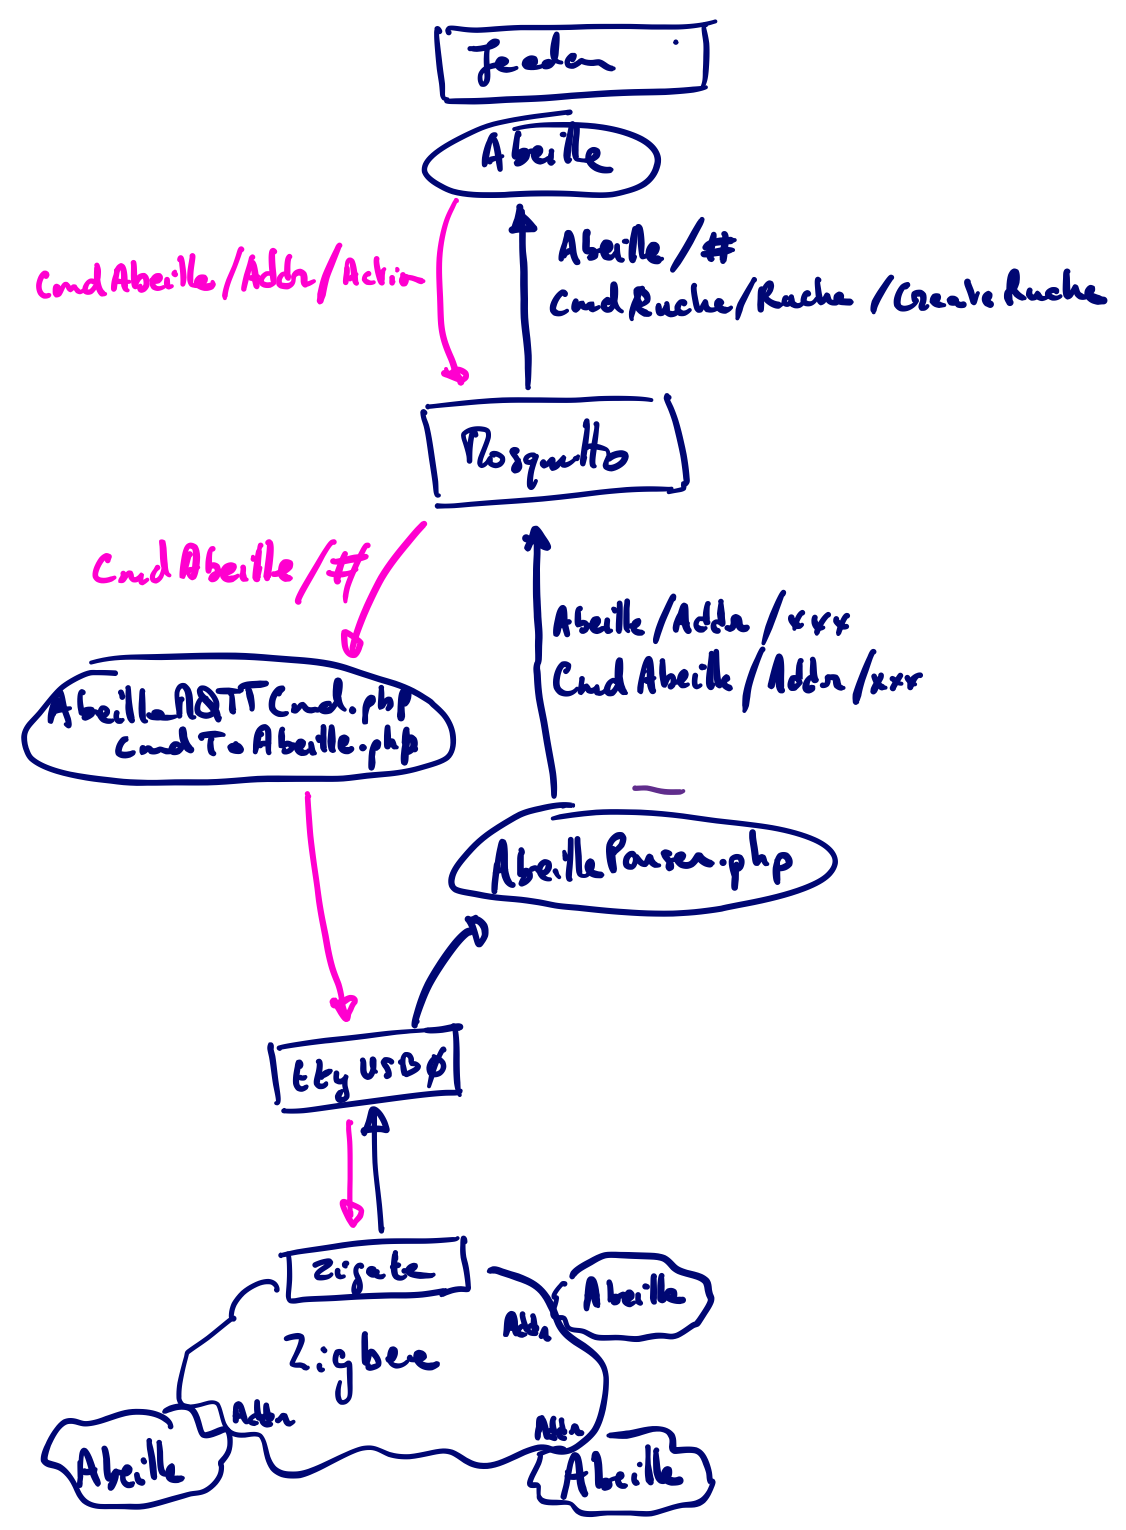 Jeedom
Abeille
CmdAbeille/Addr/Action
Abeille/#
CmdRuche/Ruche/CreateRuche
Mosquitto
CmdAbeille/#
Abeille/Addr/xxx
CmdAbeille/Addr/xxx
AbeilleMQTTCmd.php
CmdToAbeille.php
AbeilleParser.php
ttyUSB0
Zigate
Abeille
Addr
Zigbee
Addr
Addr
Abeille
Abeille